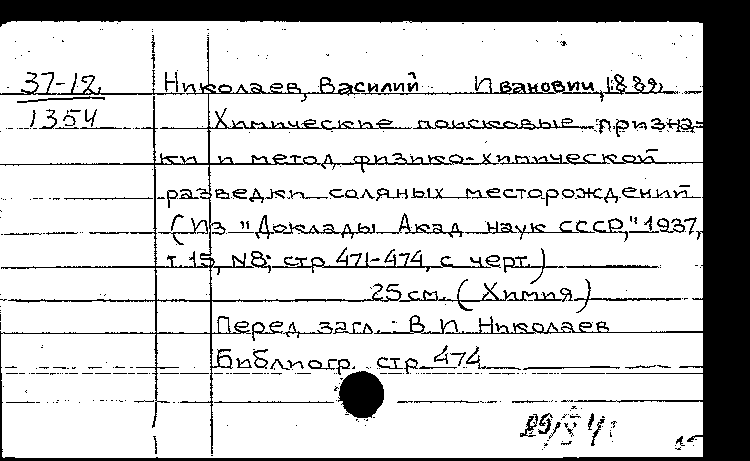 37-12
1354
Николаев, Василий Иванович, 1889
Химические поисковые призна-
ки и метод физико-химической
разведки соляных месторождений
(Из "Доклады Акад наук СССР," 1937,
т. 15, N8; стр 471-474, с черт.)
25 см. (Химия)
Перед загл.: В. И. Николаев
Библиогр. стр. 474